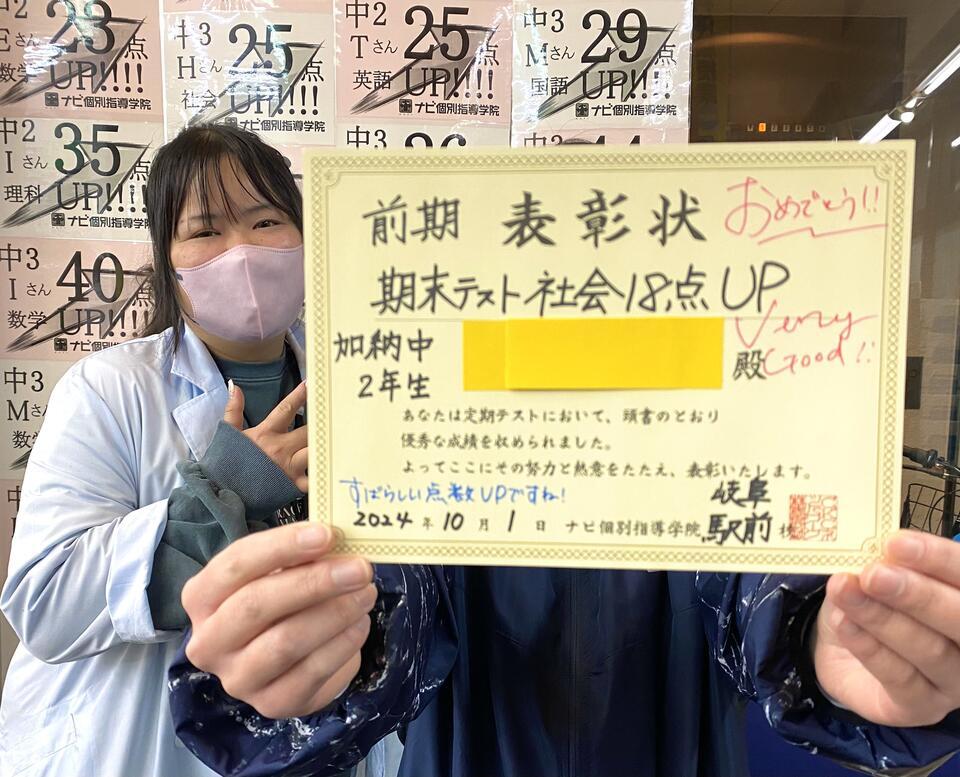 中2
Eさん
数学
23点
UP!!!!
ナビ個別指導学院
中3
Hさん
社会
25点
UP!!!!
ナビ個別指導学院
中2
Tさん
英語
25点
UP!!!!
ナビ個別指導学院
中3
Mさん
国語
29点
UP!!!!
ナビ個別指導学院
中2
Iさん
理科
35点
UP!!!!
ナビ個別指導学院
中3
Iさん
数学
40点
UP!!!!
ナビ個別
中3
Mさん
数学
中3
前期 表彰状
おめでとう!!
期末テスト社会18点UP
Very
Good!!
加納中
2年生
殿
あなたは定期テストにおいて、頭書のとおり
優秀な成績を収められました。
よってここにその努力と熱意をたたえ、表彰いたします。
すばらしい点数UPですね!
2024年10月1日 ナビ個別指導学院 岐阜駅前校